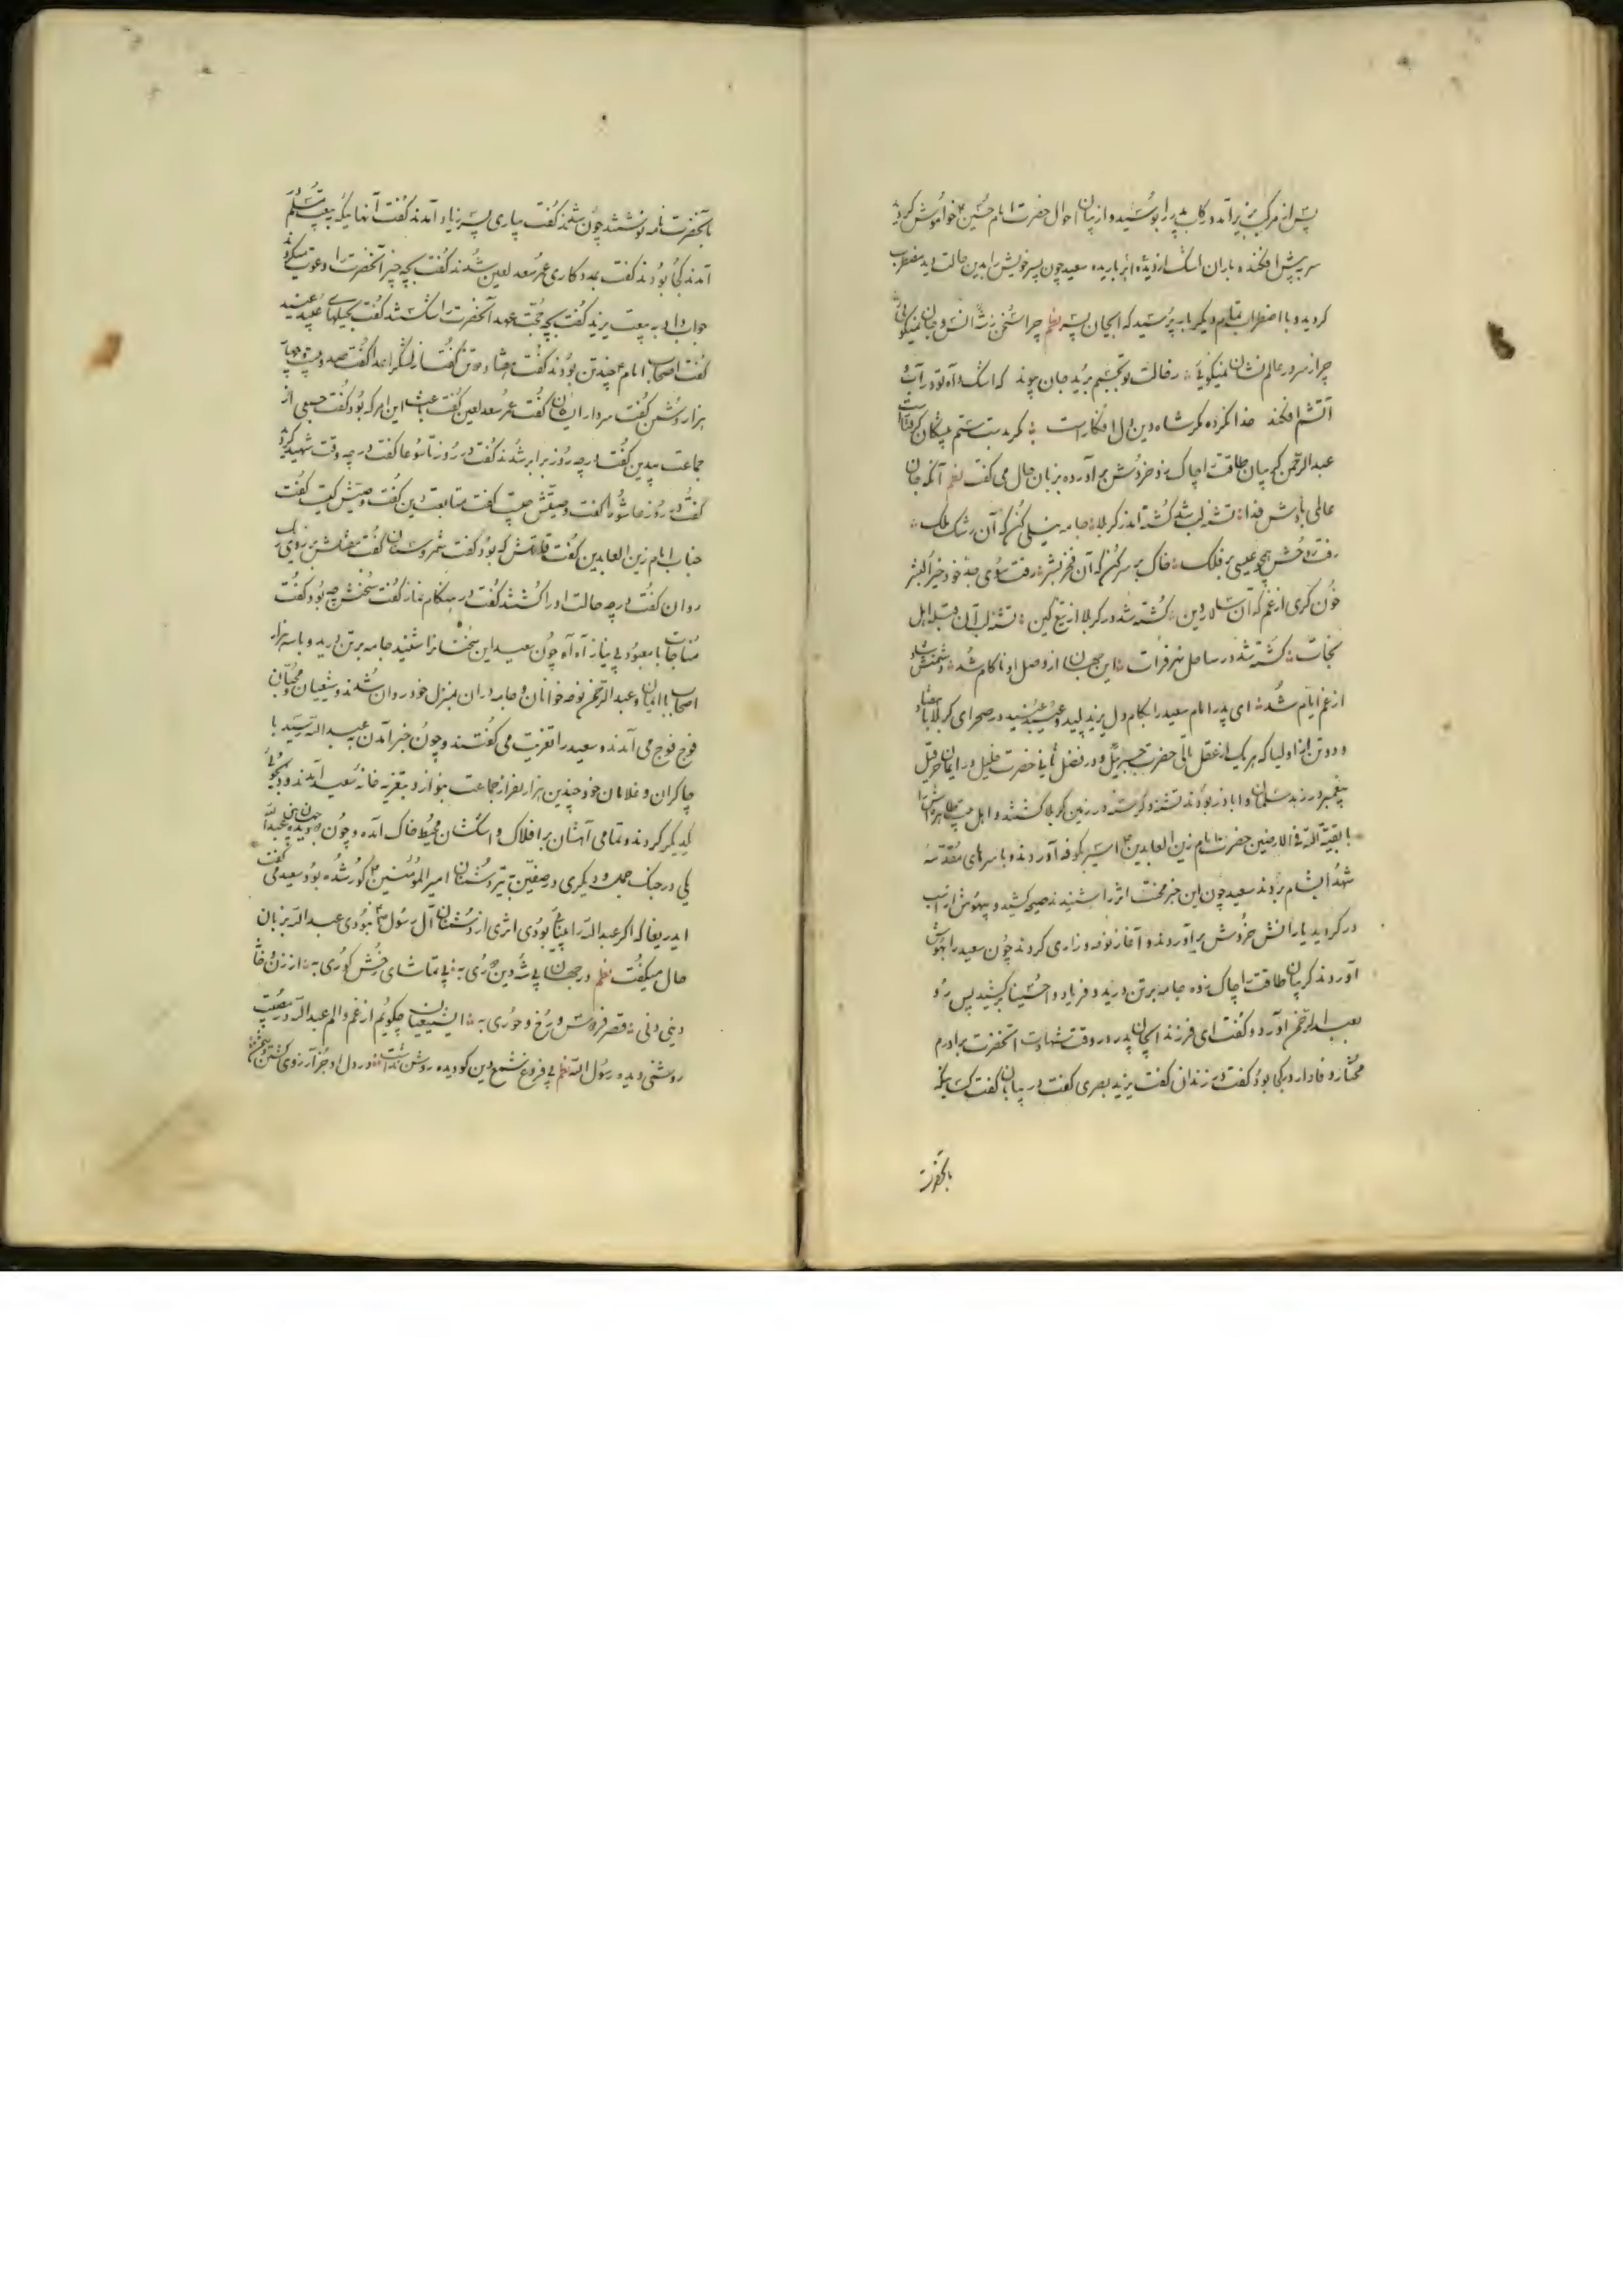 پس از مرکب بزیر آمد و رکاب پدر را بوسید و از بیان احوال حضرت امام حسین خواموش کردید
سر به پیش افکنده باران اشک از دیده ابر باریده سعید چون پسر خویش را بدین حالت دید مضطرب
کردید و با اضطراب تمام دیکر باره پرسید که ایجان پسر نظم چرا سخن ز شه انس و جان نمیکوئی
چرا ز سرور عالم نشان نمیکوئی ز حالت تو بجسم برید جان پیوند که اشک و آه تو در آب و
آتشم افکند خدا نکرده مکر شاه دین دل افکار است مکر بدست ستم پیشکان کرفتار است
عبدالرحمن کریبان طاقت را چاک زد و خروش برآورده بزبان حال می کفت نظم آنکه جان
عالمی بادش فدا تشنه لب شد کشته اندر کربلا جامه نیلی کن که آن رشک ملک
رفت روحش همچو عیسی بر فلک خاک بر سر کن که آن فخر بشر رفت سوی جد خود خیر البشر
خون کری از غم که آن سالار دین کشته شد در کربلا از تیغ کین تشنه لب آن قبله اهل
نجات کشته شد در ساحل نهر فرات این جهان از وصل او ناکام شد دشمنش شاد
از غم ایام شد ای پدر امام سعید را بکام دل یزید پلید و عبید عنید در صحرای کربلا با هفتاد
و دو تن از اولیا که هر یک از عقل تالی حضرت جبریل و در فضل ثانی حضرت خلیل و در ایمان حزقیل
پیغمبر و در زهد سلمان و اباذر بودند تشنه و کرسنه در زمین کربلا کشتند و اهل بیت طاهره اش را
با بقیة الله فی الارضین حضرت امام زین العابدین اسیر بکوفه آوردند و با سرهای مقدسه
شهدا بشام بردند سعید چون این خبر محنت اثر را شنید نه صیحه کشید و بیهوش از اسب
در کردید یارانش خروش برآوردند و آغاز نوحه و زاری کردند چون سعید را بهوش
آوردند کریبان طاقت را چاک زده جامه بر تن درید و فریاد واحسینا برکشید پس رو
بعبدالرحمن آورد و کفت ای فرزند ایجان پدر در وقت شهادت آنحضرت برادرم
مختار وفادار در کجا بود کفت در زندان کفت یزید بصری کفت در بیابان کفت کسانیکه
بآنحضرت
بآنحضرت نامه نوشتند چون شدند کفت بیاری پسر زیاد آمدند کفت آنهائیکه به بیعت مسلم در
آمدند کجا بودند کفت بمددکاری عمر سعد لعین شدند کفت بچه چیز آنحضرت را دعوت میکردند
جواب داد به بیعت یزید کفت بچه حجت عهد آنحضرت را شکستند کفت بحیلهای عبید عنید
کفت اصحاب امام چند تن بودند کفت هفتاد و دو تن کفت از لشکر اعدا کفت صد و بیست و چهار
هزار دشمن کفت سردار ایشان کفت عمر سعد لعین کفت باعث این امر که بود کفت جمعی از
جماعت بیدین کفت در چه روز برابر شدند کفت در روز تاسوعا کفت در چه وقت شهید کردند
کفت در روز عاشورا کفت وصیتش چیست کفت متابعت دین کفت وصیش کیست کفت
جناب امام زین العابدین کفت قاتلش که بود کفت شمر و سنان کفت
روان کفت در چه حالت او را کشتند کفت در هنکام نماز کفت سخنش چه بود کفت
مناجات با معبود بی نیاز آه آه چون سعید این سخنان را شنید جامه بر تن درید و با سه هزار
اصحاب با ایمان و عبدالرحمن نوحه خوانان و جامه دران بمنزل خود روان شدند و شیعیان و محبان
فوج فوج می آمدند و سعید را تعزیت می کفتند و چون خبر آمدن بعبدالله رسید با
چاکران و غلامان خود و چندین هزار نفر از جماعت بنو ازد بتعزیه خانه سعید آمدند و دلجوئی
یکدیکر کردند و تمامی آهشان بر افلاک و اشکشان محیط خاک آمده و چون عبدالله
یکی در جنک جمل و دیکری در صفین به تیر دشمنان امیرالمؤمنین کور شده بود سعید می کفت
ایدریغا که اکر عبدالله را بینائی بودی اثری از دشمنان آل رسول نبودی عبدالله بزبان
حال میکفت نظم در جهان بی شه دین کوری به بی تماشای رخش کوری به از زن و خانه
دینی دنی قصر فردوس و رخ و حوری به ای شیعیان چکویم از غم و الم عبدالله در مصیبت
روشنی دیده رسول الله نظم بی فروغ شمع دین کو دیده روشن نداشت در دل او جز آرزوی کشتن دشمن نداشت